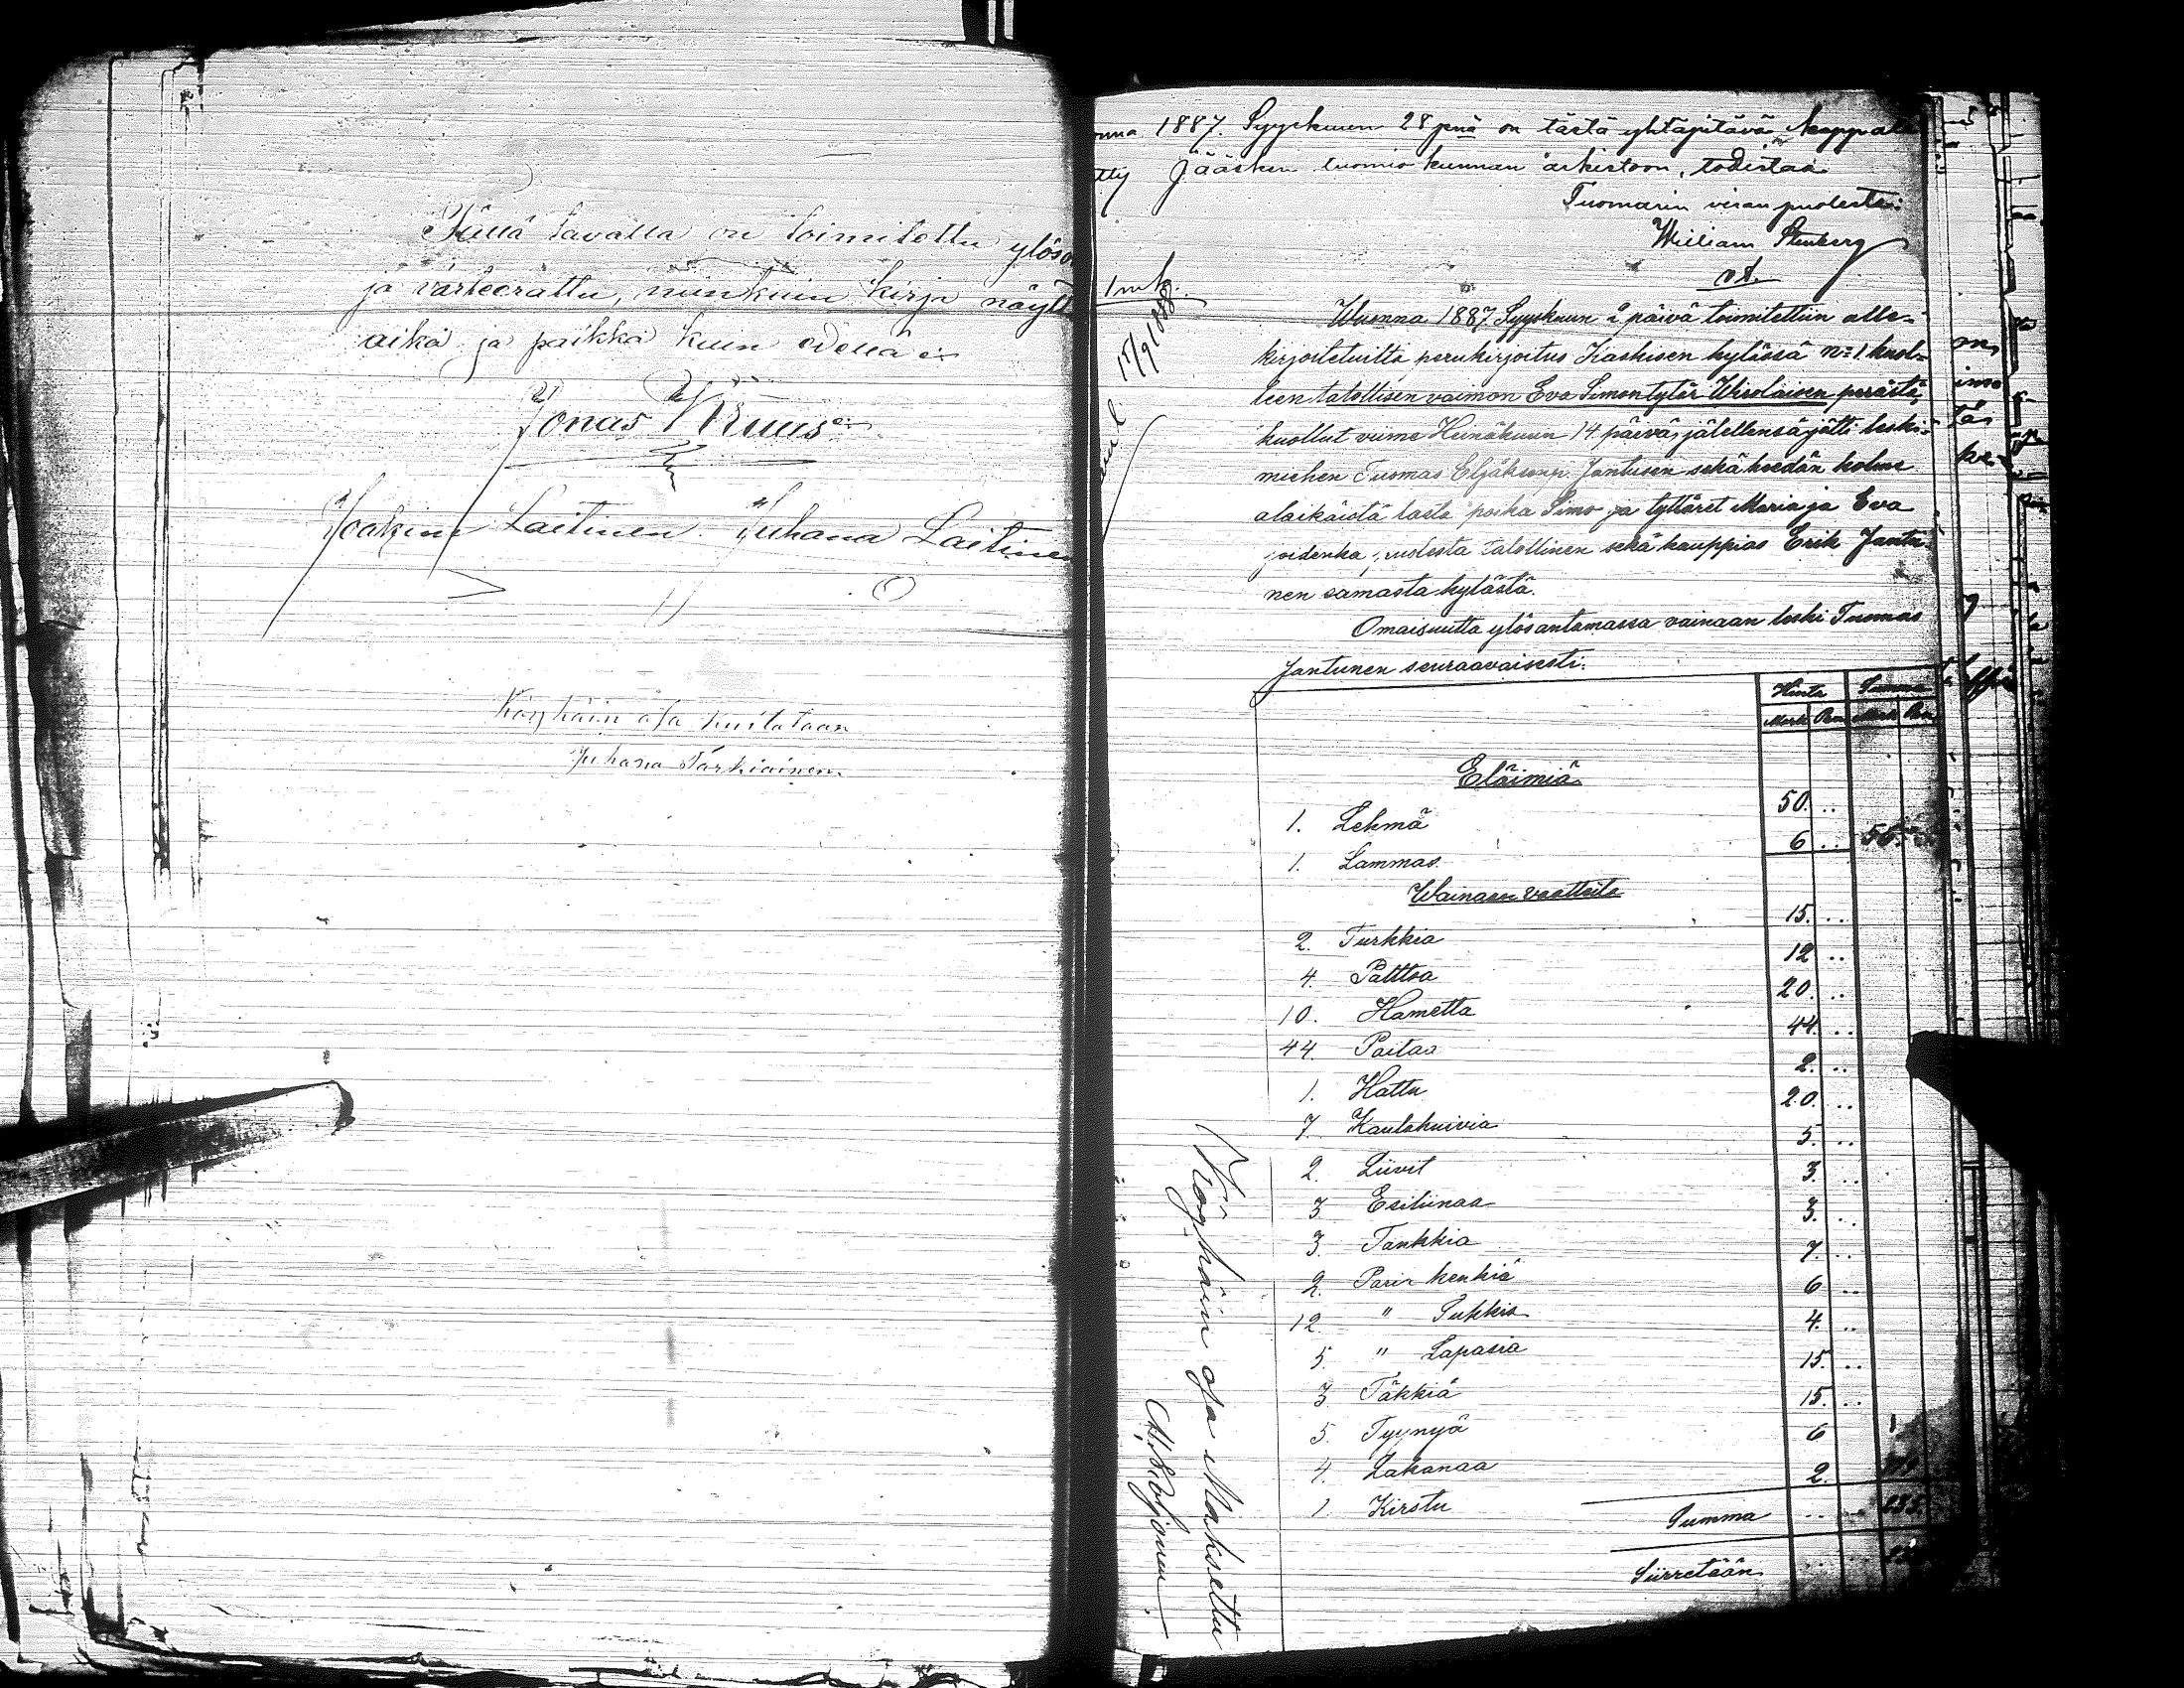 Tällä tavalla on toimitettu ylöso
ja värteerattu, niinkuin kirja näytt
aika ja paikka kuin edellä
Jonas Kruus
Joakim Laitinen Juhana Laitine
Köyhäin osa kuitataan
Juhana Tarkiainen
onna 1887. Syyskuun 28 pnä on tästä yhtäpitävä kappale
tty Jääsken tuomio kunnan arkistoon, todistaa
Tuomarin viran puolesta:
William Stenberg
vt.
1 mk.
17/9 1888
Wuonna 1887 Syyskuun 2 päivä toimitettiin alle-
kirjoitetuilta perukirjoitus Kaskisen kylässä No 1 kuol-
leen talollisen vaimon Eva Simontytär Wirolaisen perästä,
kuollut viime Heinäkuun 14 päivä, jälellensä jätti leski-
miehen Tuomas Eljäksenp. Jantusen sekä heidän kolme
alaikäistä lasta poika Simo ja tyttäret Maria ja Eva
joidenka puolesta talollinen sekä kauppias Erik Jantu-
nen samasta kylästä.
Omaisuutta ylösantamassa vainaan leski Tuomas
Jantunen seuraavaisesti:
Hinta Summa
Mark Pen Mark Pen
Eläimiä
1. Lehmä 50. ..
1. Lammas 6 .. 56.
Wainaan vaatteita
2. Turkkia 15. ..
4. Palttoa 12 ..
10. Hametta 20. ..
44 Paitaa 44. ..
1. Hattu 2. ..
7. Kaulahuivia 20. ..
2. Liivit 5. ..
3 Esiliinaa 3. ..
3. Tankkia 3. ..
2. Paria kenkiä 7. ..
12. " Sukkia 6 ..
5 " Lapasia 4. ..
3 Täkkiä 15. ..
5. Tyynyä 15. ..
4. Lakanaa 6
1. Kirstu 2.
Summa
Siirretään
Köyhäin osa Maksettu